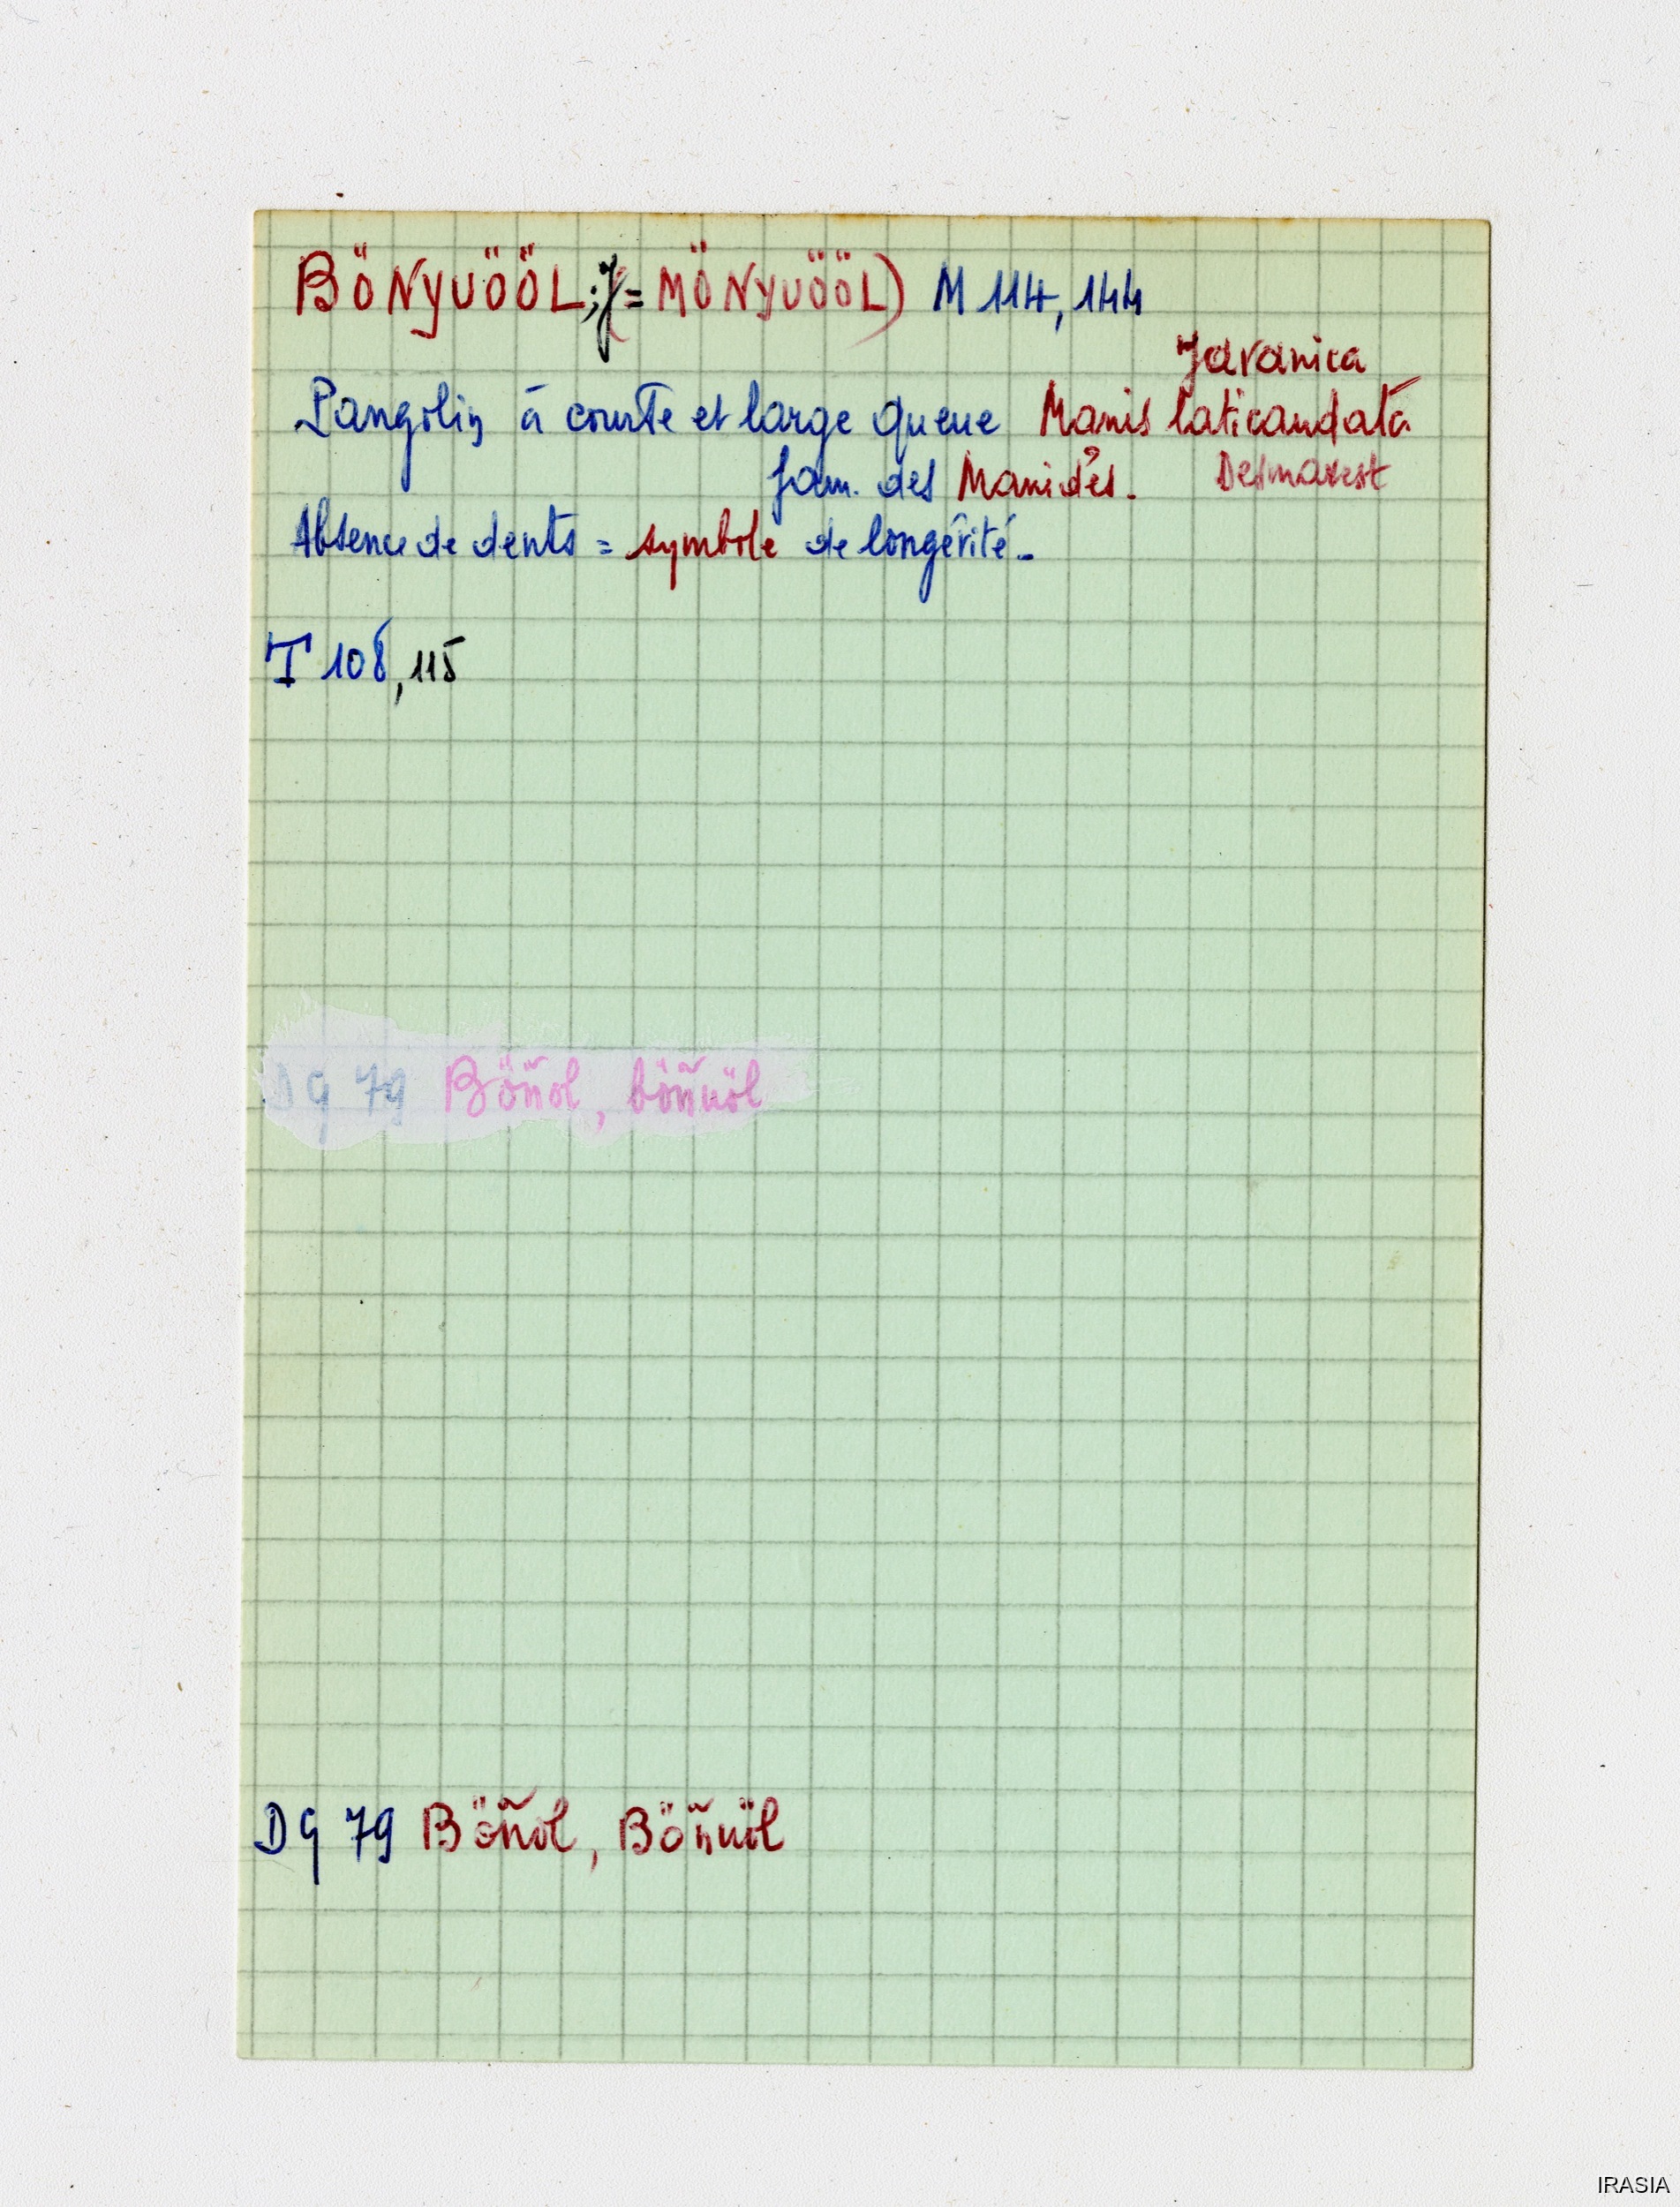 BÖNYUÖÖL; (= MÖNYUÖÖL) M 114, 144
Javanica
Pangolin à courte et large queue Manis laticaudata
fam. des Manidés. Desmarest
Absence de dents = symbole de longévité.
T 108, 115
DG 79 Böñol, böñuöl
DG 79 Böñol, Böñuöl
IRASIA